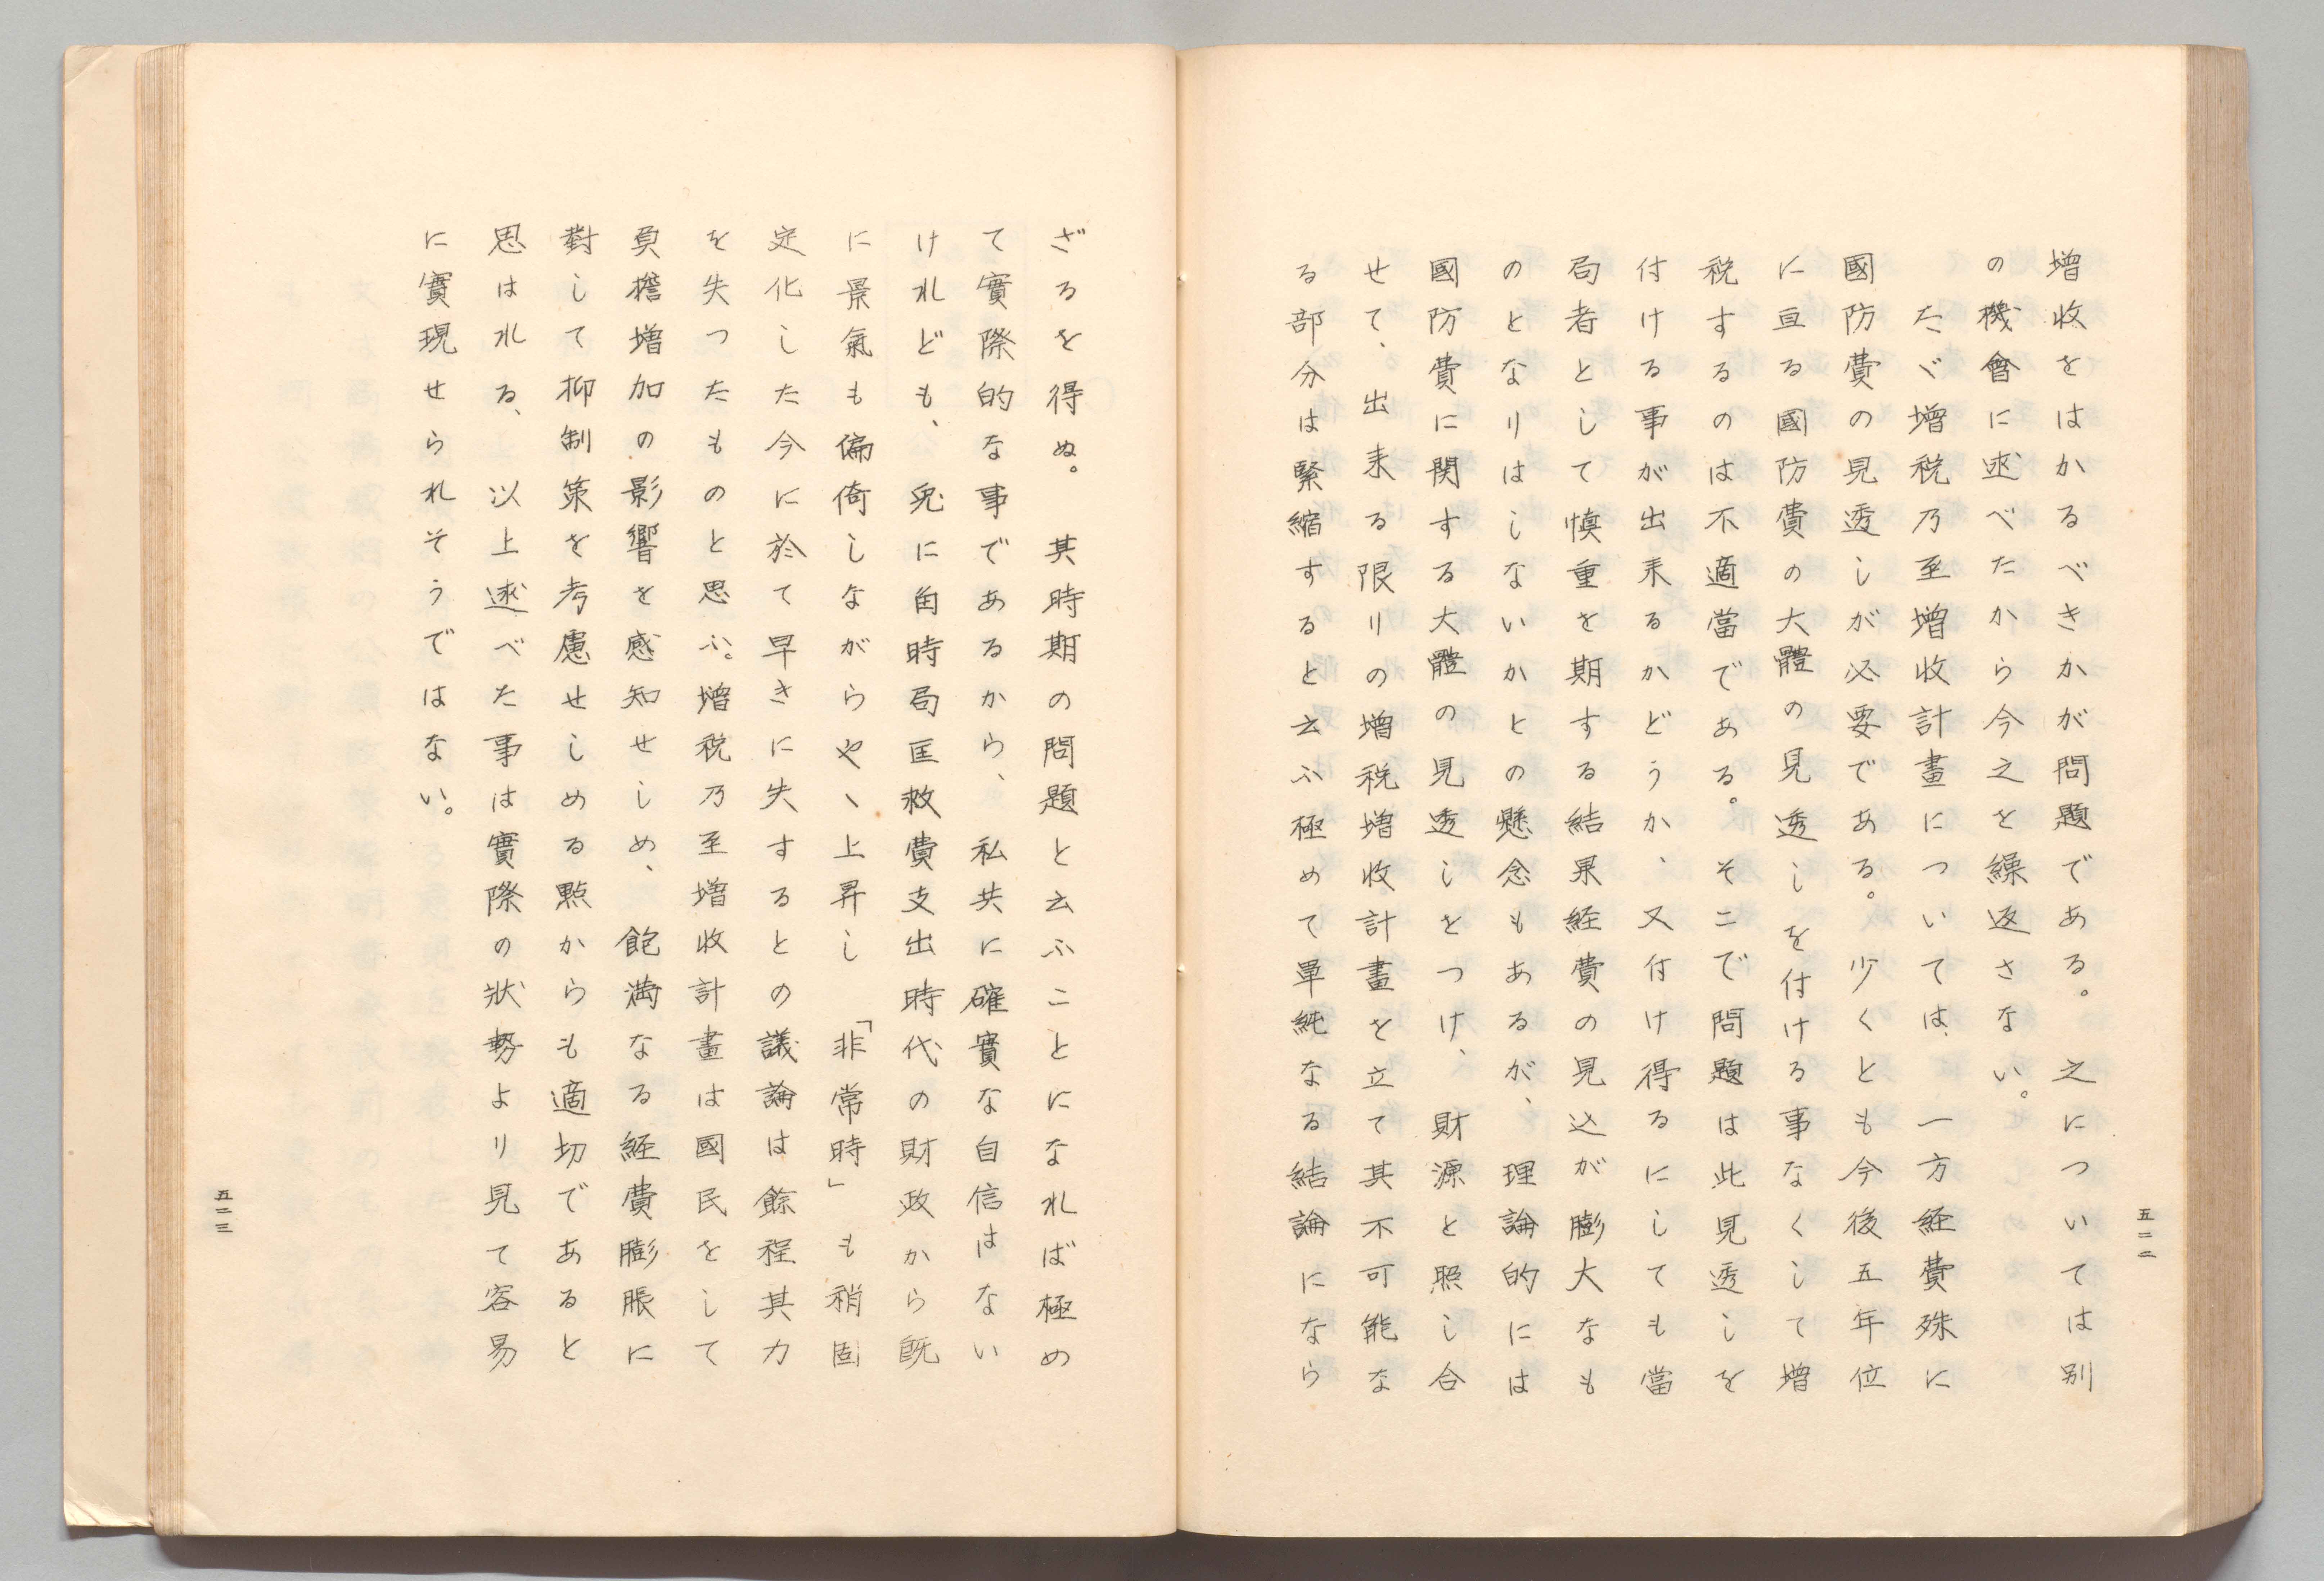 増收をはかるべきかが問題である。之については別
の機會に述べたから今之を繰返さない。
たゞ増税乃至増收計畫については、一方経費殊に
國防費の見透しが必要である。少くとも今後五年位
に亘る國防費の大體の見透しを付ける事なくして増
税するのは不適當である。そこで問題は此見透しを
付ける事が出来るかどうか、又付け得るにしても當
局者として慎重を期する結果経費の見込が膨大なも
のとなりはしないかとの懸念もあるが、理論的には
國防費に関する大體の見透しをつけ、財源と照し合
せて、出来る限りの増税増收計畫を立て其不可能な
る部分は緊縮すると云ふ極めて單純なる結論になら
五二二
ざるを得ぬ。其時期の問題と云ふことになれば極め
て實際的な事であるから、私共に確實な自信はない
けれども、兎に角時局匡救費支出時代の財政から既
に景氣も偏倚しながらやゝ上昇し「非常時」も稍固
定化した今に於て早きに失するとの議論は餘程其力
を失つたものと思ふ。増税乃至増收計畫は國民をして
負擔増加の影響を感知せしめ、飽満なる経費膨脹に
對して抑制策を考慮せしめる點からも適切であると
思はれる、以上述べた事は實際の狀勢より見て容易
に實現せられそうではない。
五二三